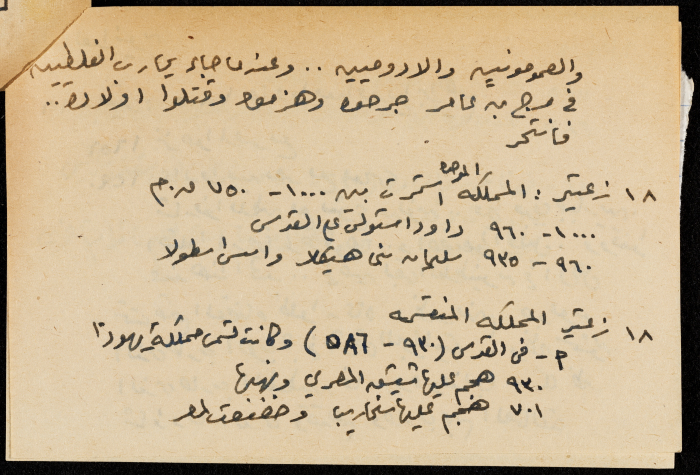 والعمونيين والادوميين .. وعندما جاء يحارب الفلسطينيين
في مرج بن عامر جرحوه وهزموه وقتلوا اولاده ..
فانتحر
١٨ زعيتر : المملكة الموحدة استمرت بين ١٠٠٠ - ٧٥٠ ق.م
١٠٠٠ - ٩٦٠ داود استولى ع القدس
٩٦٠ - ٩٣٥ سليمان بنى هيكلا واسس اسطولا
١٨ زعيتر المملكه المنقسمه
٢ - في القدس (٩٣٠ - ٥٨٦) وكانت تسمى مملكة يهوذا
٩٣٠ هجم عليها شيشق المصري ونهبها
٧٠١ هجم عليها سنحاريب وخضعت له